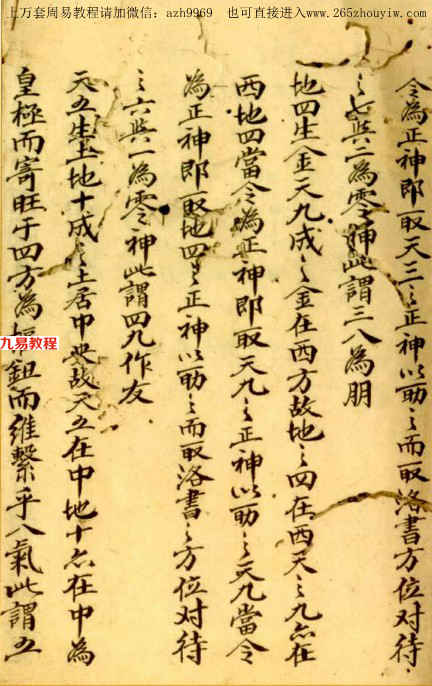 上万套周易教程请加微信：azh9969　也可直接进入www.265zhouyiw.com
令為正神即取天三之正神以助之而取洛書方位对待
之七與二為零神此謂三八為朋
地四生金天九成之金在西方故地之四在西天之九亦在
西地四當令為正神即取天九之正神以助之天九當令
為正神即取地四之正神以助之而取洛書之方位对待
之六與一為零神此謂四九作友
天五生土地十成之土居中央故天五在中地十亦在中為
皇極而寄旺于四方為樞鈕而維繫乎八氣此謂五
九易教程
www.jiu1yi.com